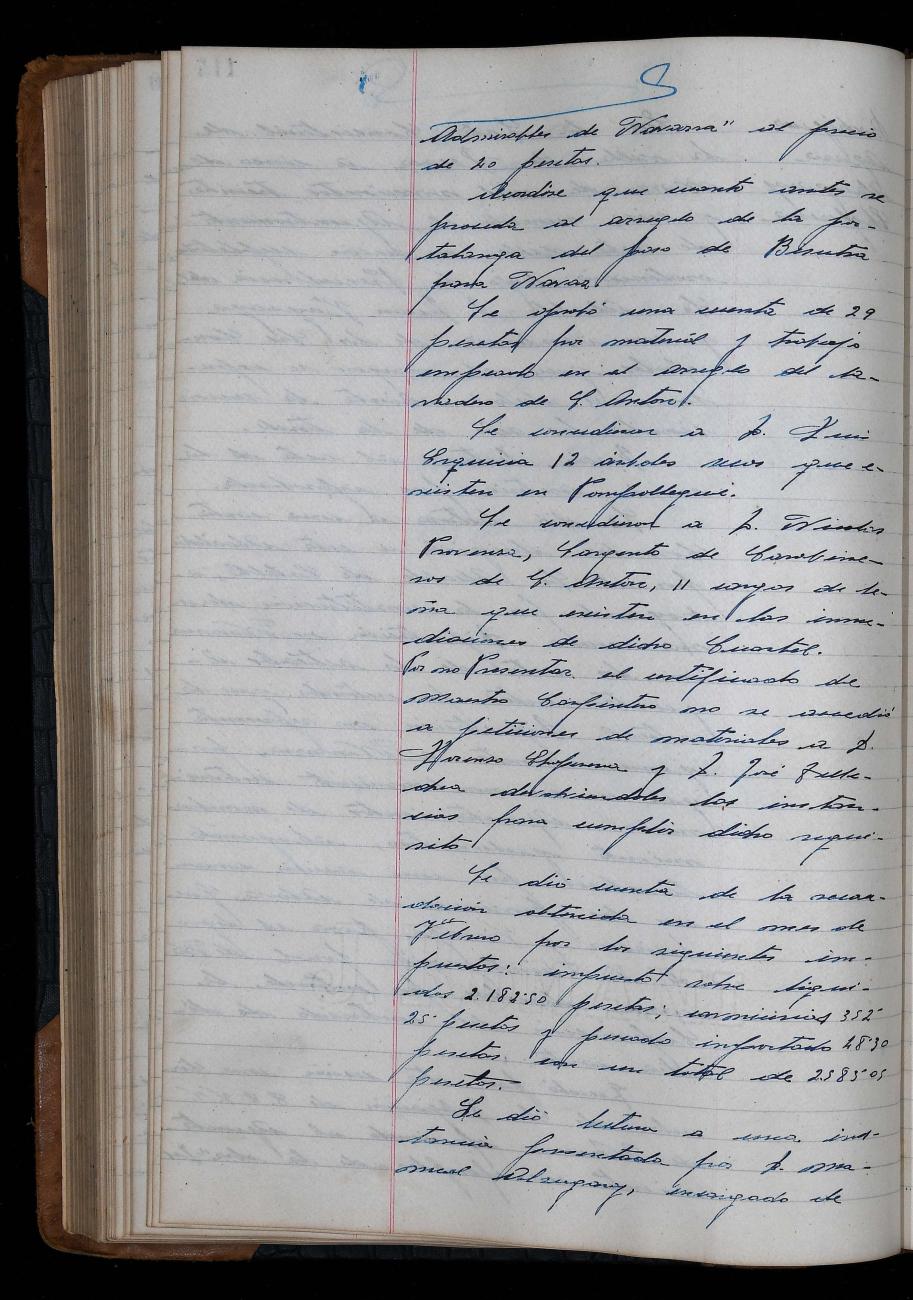 Admirables de Navarra" al precio
de 20 pesetas.
Acordose que cuanto antes se
proceda al arreglo de la por-
talanga del paso de Berutra
para Navaz
Se aprobó una cuenta de 29
pesetas por material y trabajo
empleado en el arreglo del la-
vadero de S. Anton.
Se concedieron a D. Luis
Erquicia 12 árboles secos que e-
xisten en Pompollegui.
Se concedieron a D. Nicolás
Provenza, Sargento de Carabine-
ros de S. Anton, 11 cargas de le-
ña que existen en las inme-
diaciones de dicho Cuartel.
Por no Presentar el certificado de
Maestro Carpintero no se accedió
a peticiones de materiales a D.
Lorenzo y D. José Telle-
chea las instan-
cias para cumplir dicho requi-
sito
Se dió cuenta de la recau-
dación obtenida en el mes de
Febrero por los siguientes im-
puestos: impuesto sobre liqui-
dos 2.182'50 pesetas; carnicerias 352'
25 pesetas y pescado importado 48'30
pesetas con un total de 2583'05
pesetas.
Se dió lectura a una ins-
tancia presentada por D. Ma-
nuel encargado de